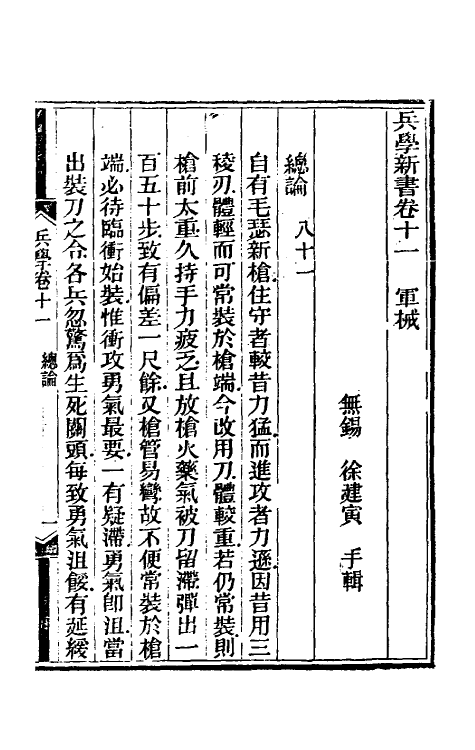 兵學新書卷十一　軍械
無錫　徐建寅　手輯
總論　八十一
自有毛瑟新槍住守者較昔力猛而進攻者力遜因昔用三
稜刃體輕而可常裝於槍端今改用刀體較重若仍常裝則
槍前太重久持手力疲乏且放槍火藥氣被刀留滯彈出一
百五十步致有偏差一尺餘又槍管易彎故不便常裝於槍
端必待臨衝始裝惟衝攻勇氣最要一有疑滯勇氣卽沮當
出裝刀之令各兵忽驚爲生死關頭每致勇氣沮餒有延緩
兵學卷十一　總論　一